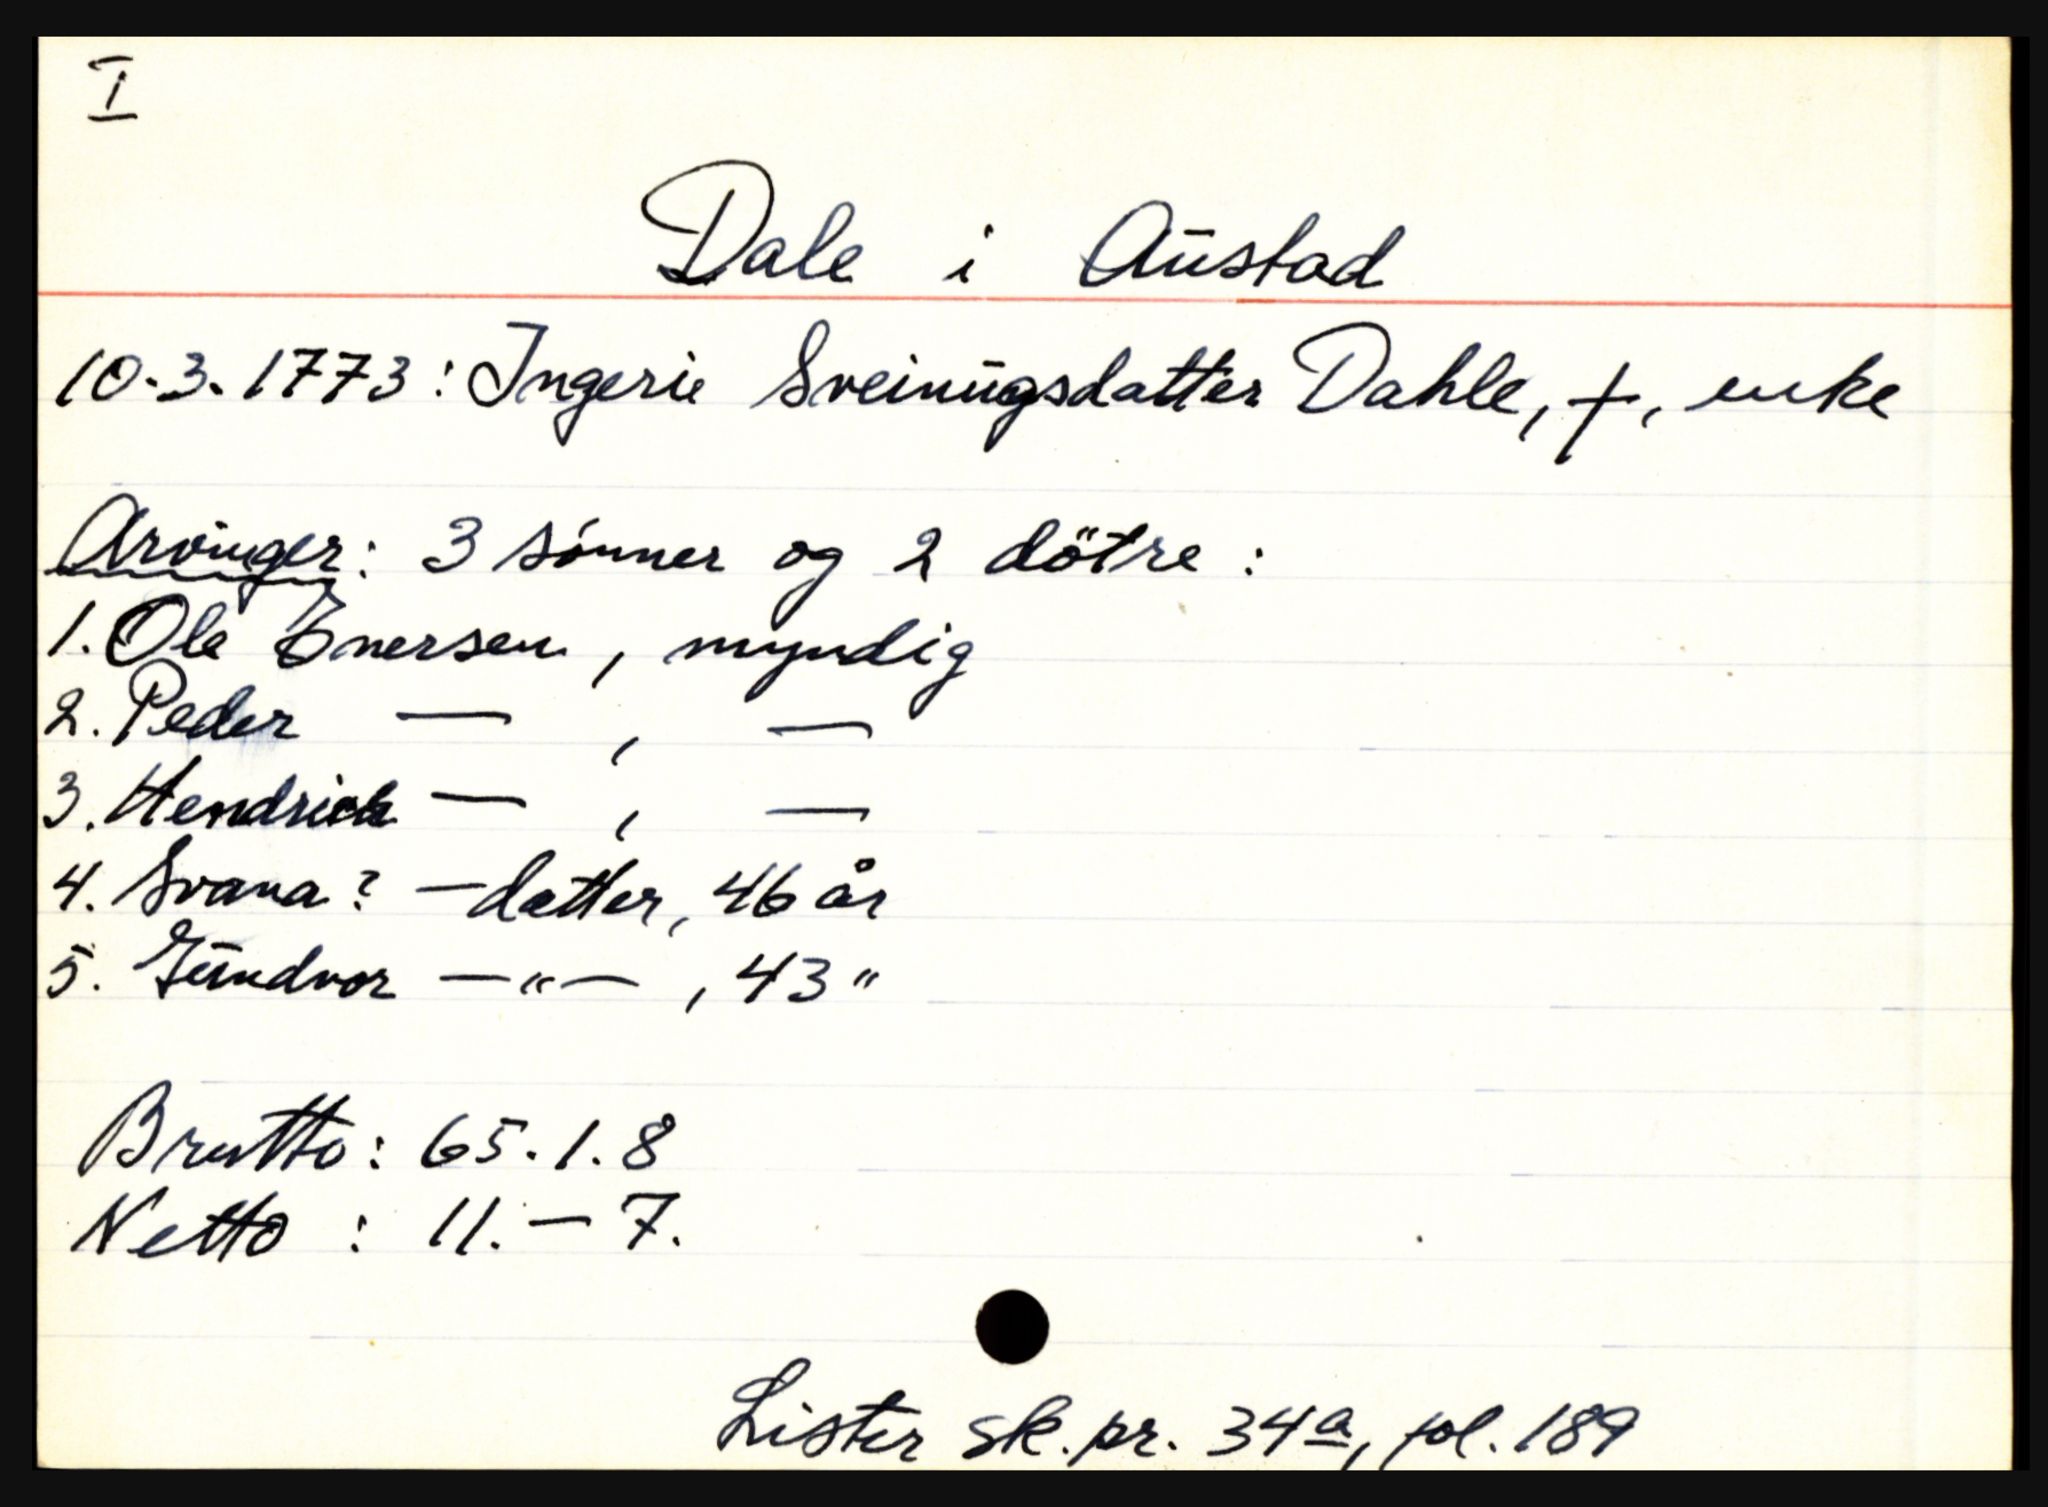 I
Dale i Austad
10.3.1773: Ingerie Sveinugsdatter Dahle, †, enke
Arvinger: 3 sønner og 2 døtre:
1. Ole Enersen, myndig
2. Peder — , —
3. Hendrich — , —
4. Svana? — datter, 46 år
5. Gundvor —"— , 43 "
Brutto: 65.1.8
Netto: 11.—7.
Lister sk.pr. 34a, fol. 189